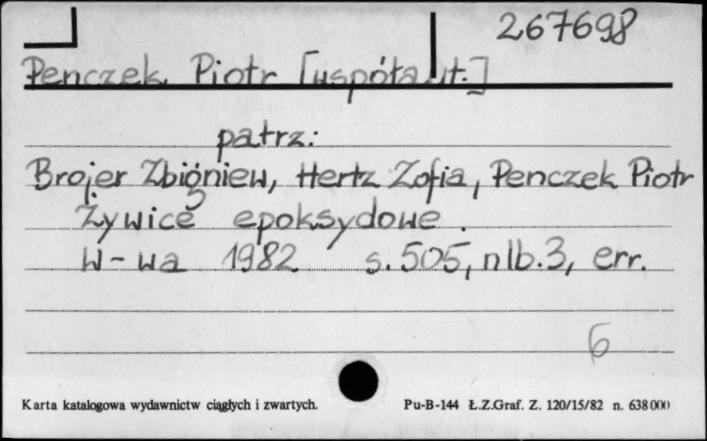 267698
Penczek Piotr [współaut.]
patrz:
Brojer Zbigniew, Hertz Zofia, Penczek Piotr
Żywice epoksydowe.
W-wa 1982 s. 505, nlb. 3, err.
6
Karta katalogowa wydawnictw ciągłych i zwartych. Pu-B-144 Ł.Z.Graf. Z. 120/15/82 n. 638000